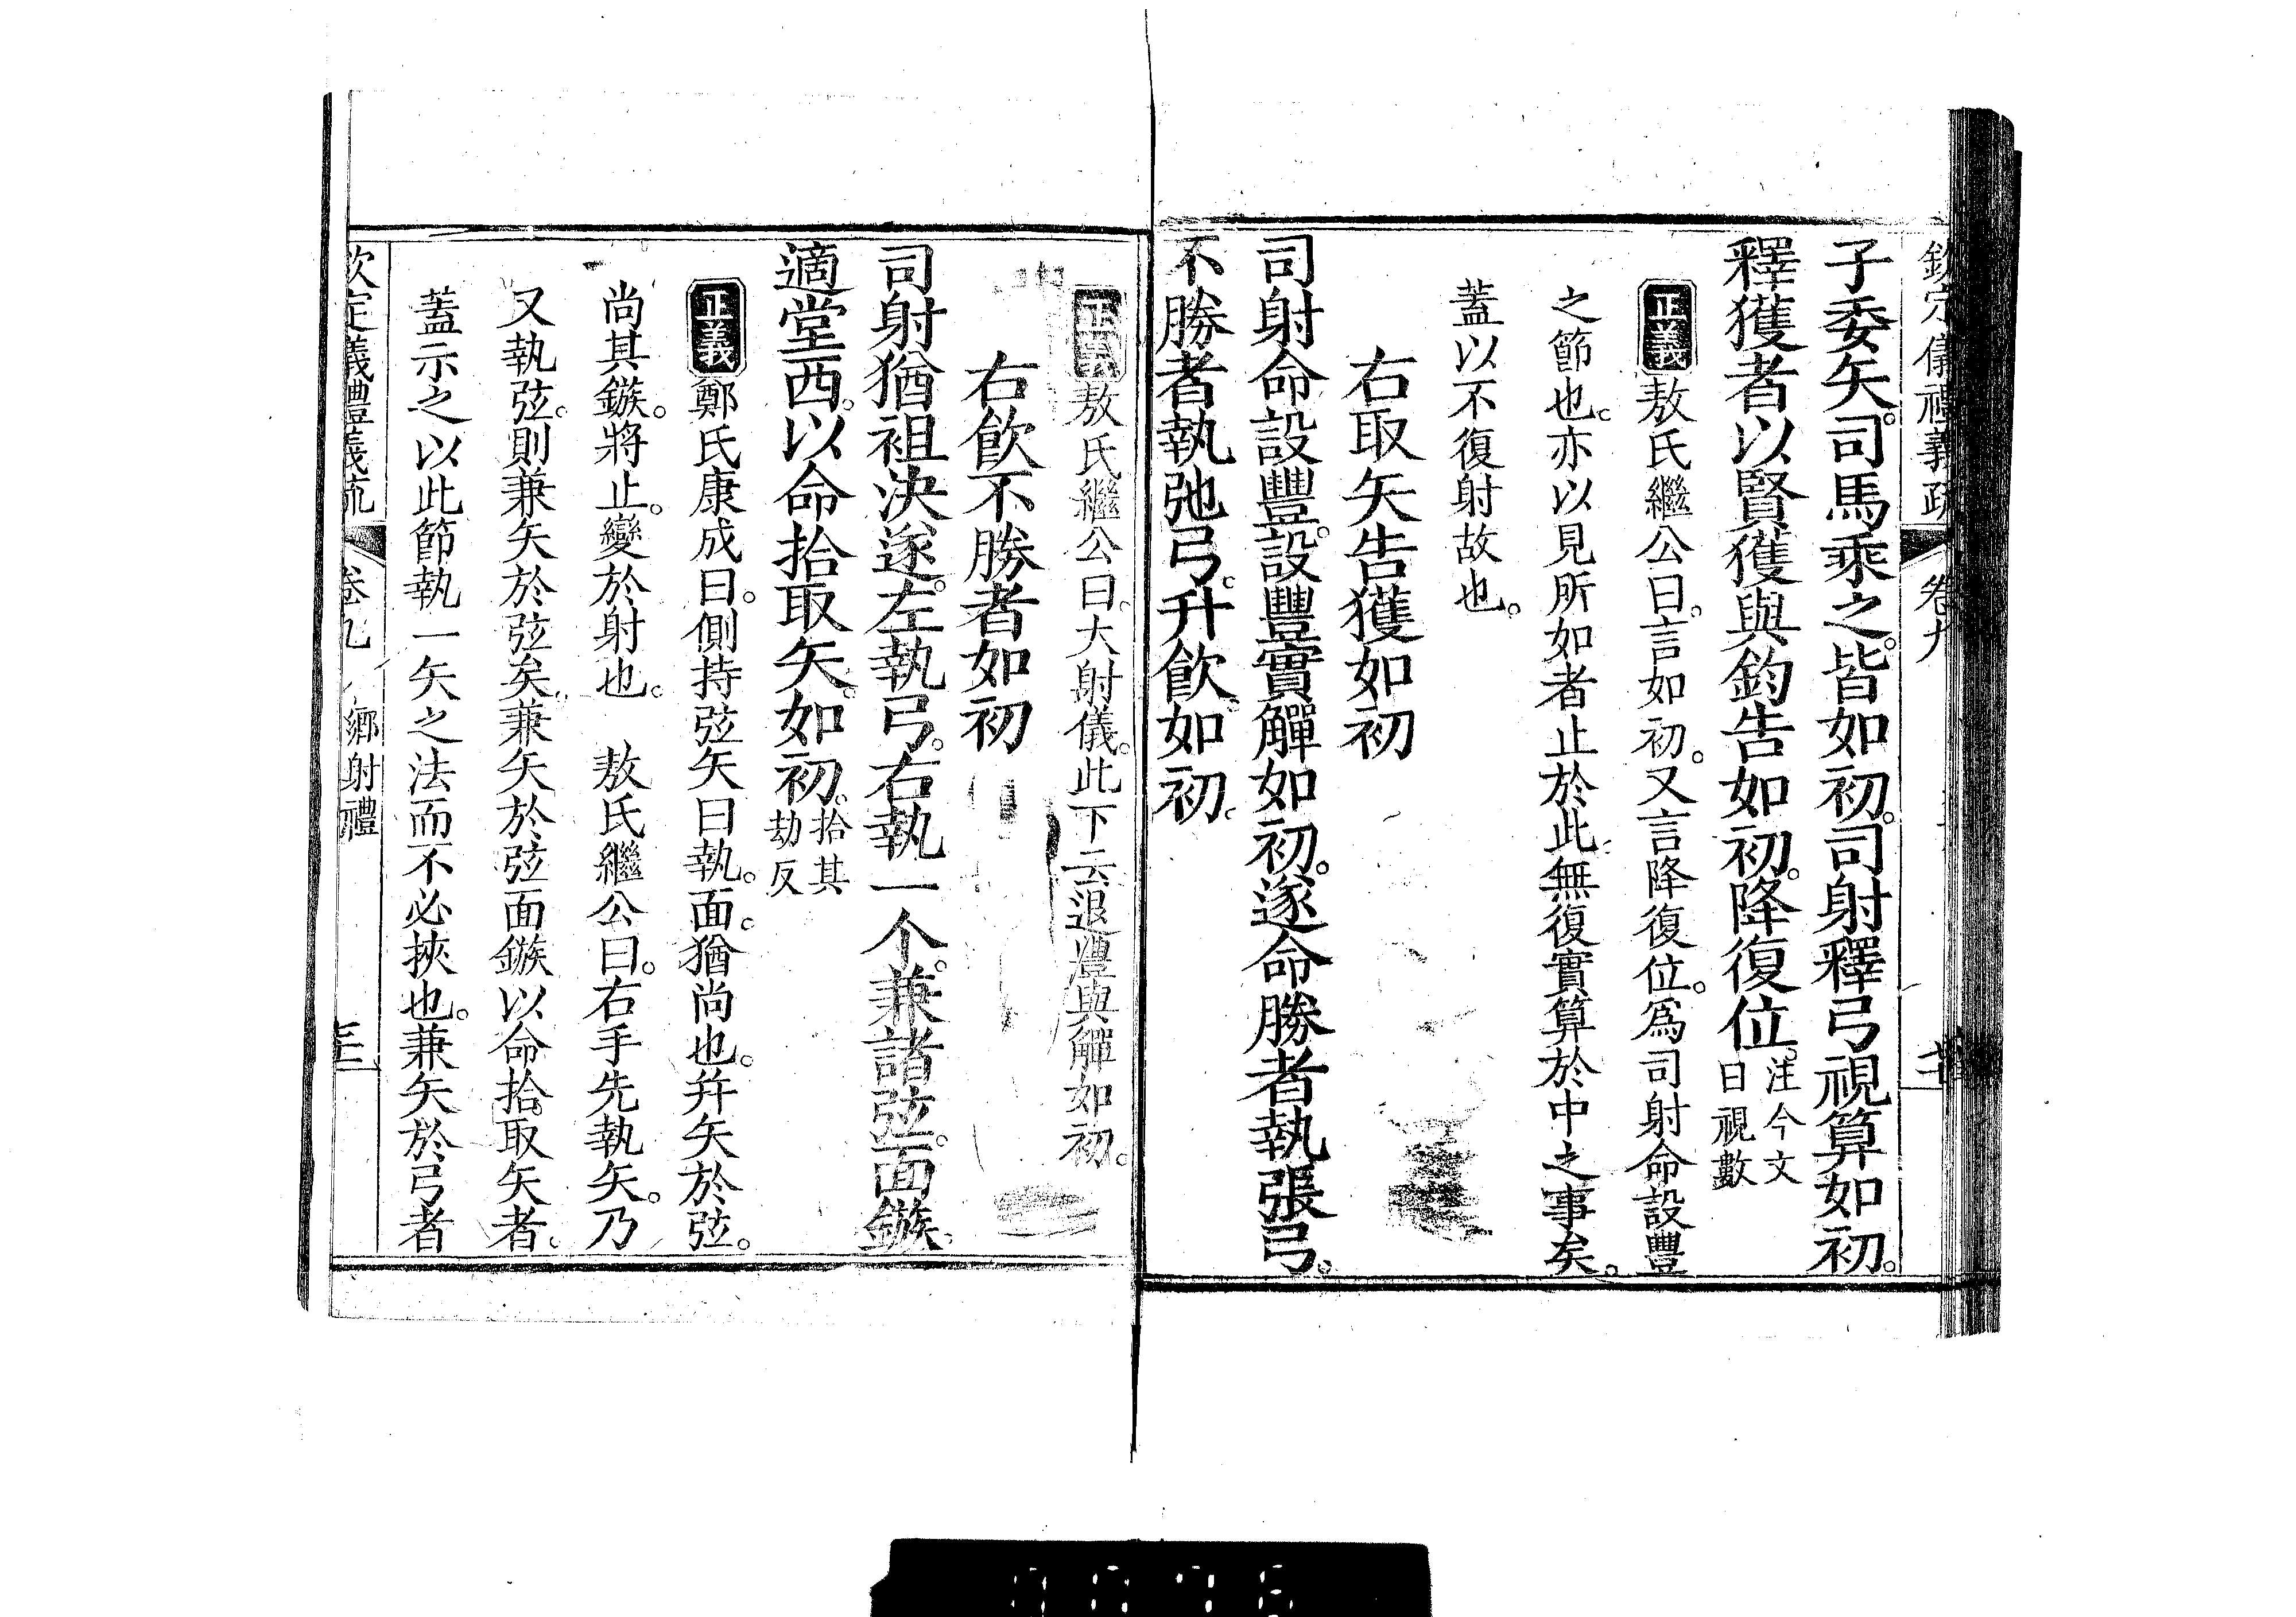 欽定儀禮義疏 卷九
子委矢。司馬乘之。皆如初。司射釋弓視算如初。
釋獲者以賢獲與鈞告如初。降復位。注今文曰視數
正義敖氏繼公曰。言如初。又言降復位。爲司射命設豐
之節也。亦以見所如者止於此。無復實算於中之事矣。
蓋以不復射故也。
右取矢告獲如初
司射命設豐。設豐實觶如初。遂命勝者執張弓。
不勝者執弛弓。升飮如初。
正義敖氏繼公曰。大射儀。此下云退豐與觶如初。
右飮不勝者如初
司射猶袒決遂。左執弓。右執一个。兼諸弦。面鏃。
適堂西。以命拾取矢。如初。拾其劫反
正義鄭氏康成曰。側持弦矢曰執。面。猶尚也。幷矢於弦。
尚其鏃。將止。變於射也。 敖氏繼公曰。右手先執矢。乃
又執弦。則兼矢於弦矣。兼矢於弦面鏃以命拾取矢者。
蓋示之以此節執一矢之法而不必挾也。兼矢於弓者
欽定儀禮義疏 卷九 鄉射禮